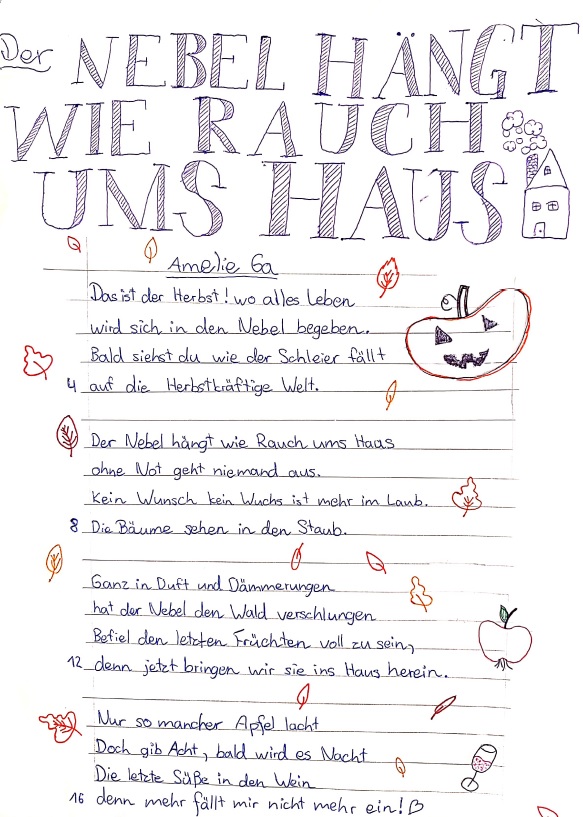 Der NEBEL HÄNGT
WIE RAUCH
UMS HAUS
Amelie 6a
Das ist der Herbst! wo alles Leben
wird sich in den Nebel begeben.
Bald siehst du wie der Schleier fällt
4 auf die Herbstkräftige Welt.
Der Nebel hängt wie Rauch ums Haas
ohne Not geht niemand aus.
Kein Wunsch kein Wuchs ist mehr im Laub.
8 Die Bäume sehen in den Staub.
Ganz in Duft und Dämmerungen
hat der Nebel den Wald verschlungen
Befiel den letzten Früchten voll zu sein,
12 denn jetzt bringen wir sie ins Haus herein.
Nur so mancher Apfel lacht
Doch gib Acht, bald wird es Nacht
Die letzte Süße in den Wein
16 denn mehr fällt mir nicht mehr ein!